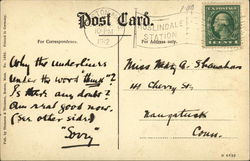 Post Card.
For Correspondence.
For Address only.
10 PM
ROSLINDALE
STATION
Why the underliners
under the word
Is there any doubt?
Am real good now.
(See other side)
Miss Mary A. Shanahan
41 Cherry St.
Naugatuck
Conn.